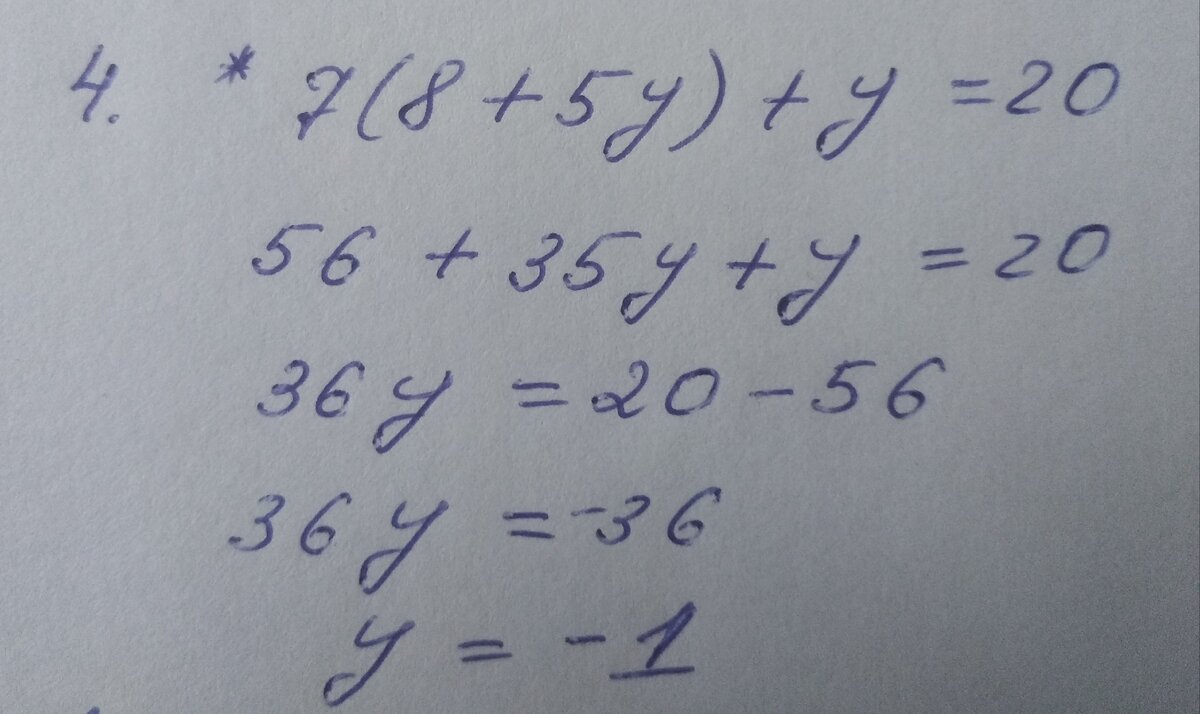 4. * 7(8 + 5y) + y = 20
56 + 35y + y = 20
36y = 20 - 56
36y = -36
y = -1